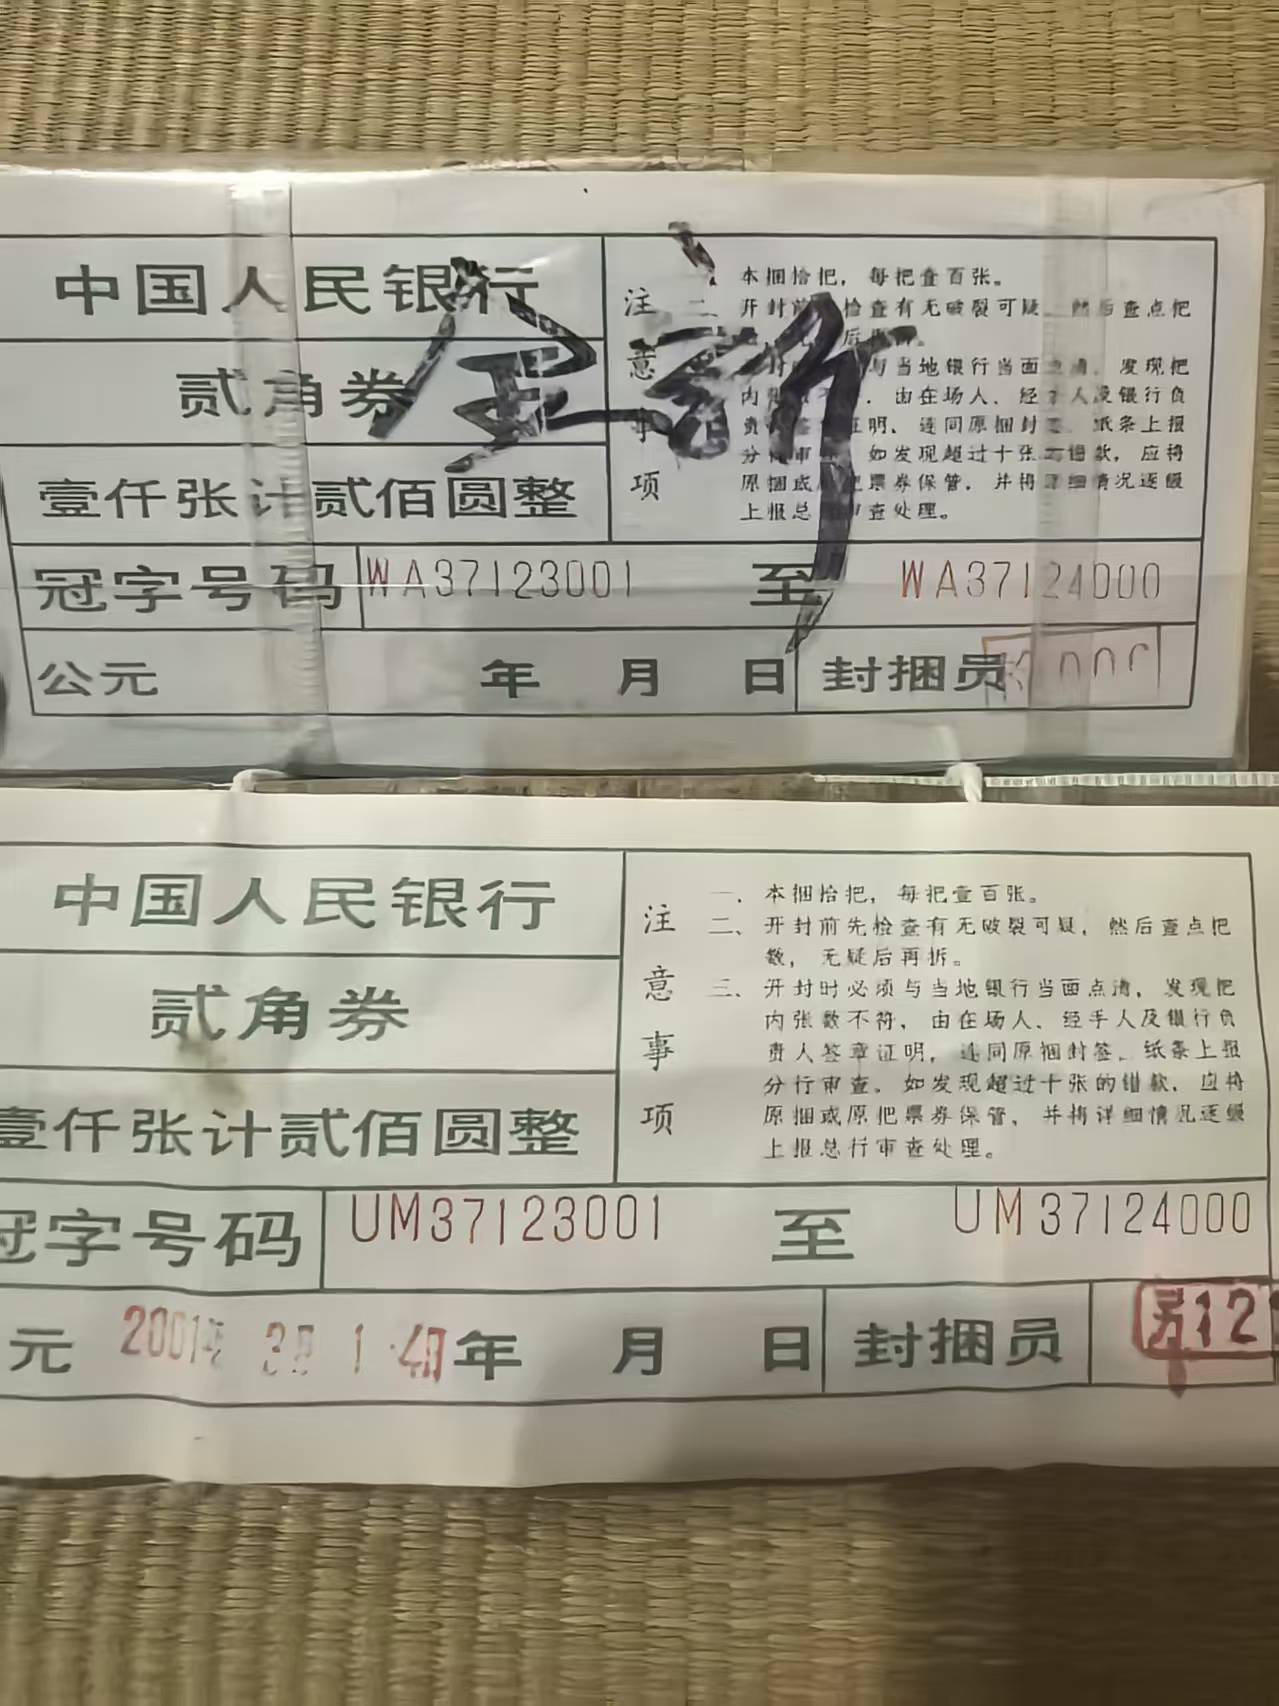 中国人民银行
贰角券
壹仟张计贰佰圆整
全新
注意事项
本捆拾把，每把壹百张。
二 开封前 检查有无破裂可疑 然后查点把
后
封 与当地银行当面 清，发现把
内 不 ，由在场人、经 人及银行负
责 签 证明，连同原捆封签、纸条上报
分 审 ，如发现超过十张 错款，应将
原捆或 把票券保管，并将详细情况逐级
上报总 审查处理。
冠字号码 WA37123001 至 WA37124000
公元 年 月 日 封捆员
中国人民银行
贰角券
壹仟张计贰佰圆整
注意事项
一、本捆拾把，每把壹百张。
二、开封前先检查有无破裂可疑，然后查点把
数，无疑后再拆。
三、开封时必须与当地银行当面点清，发现把
内张数不符，由在场人、经手人及银行负
责人签章证明，连同原捆封签、纸条上报
分行审查，如发现超过十张的错款，应将
原捆或原把票券保管，并将详细情况逐级
上报总行审查处理。
冠字号码 UM37123001 至 UM37124000
元 2001年 年 月 日 封捆员 12